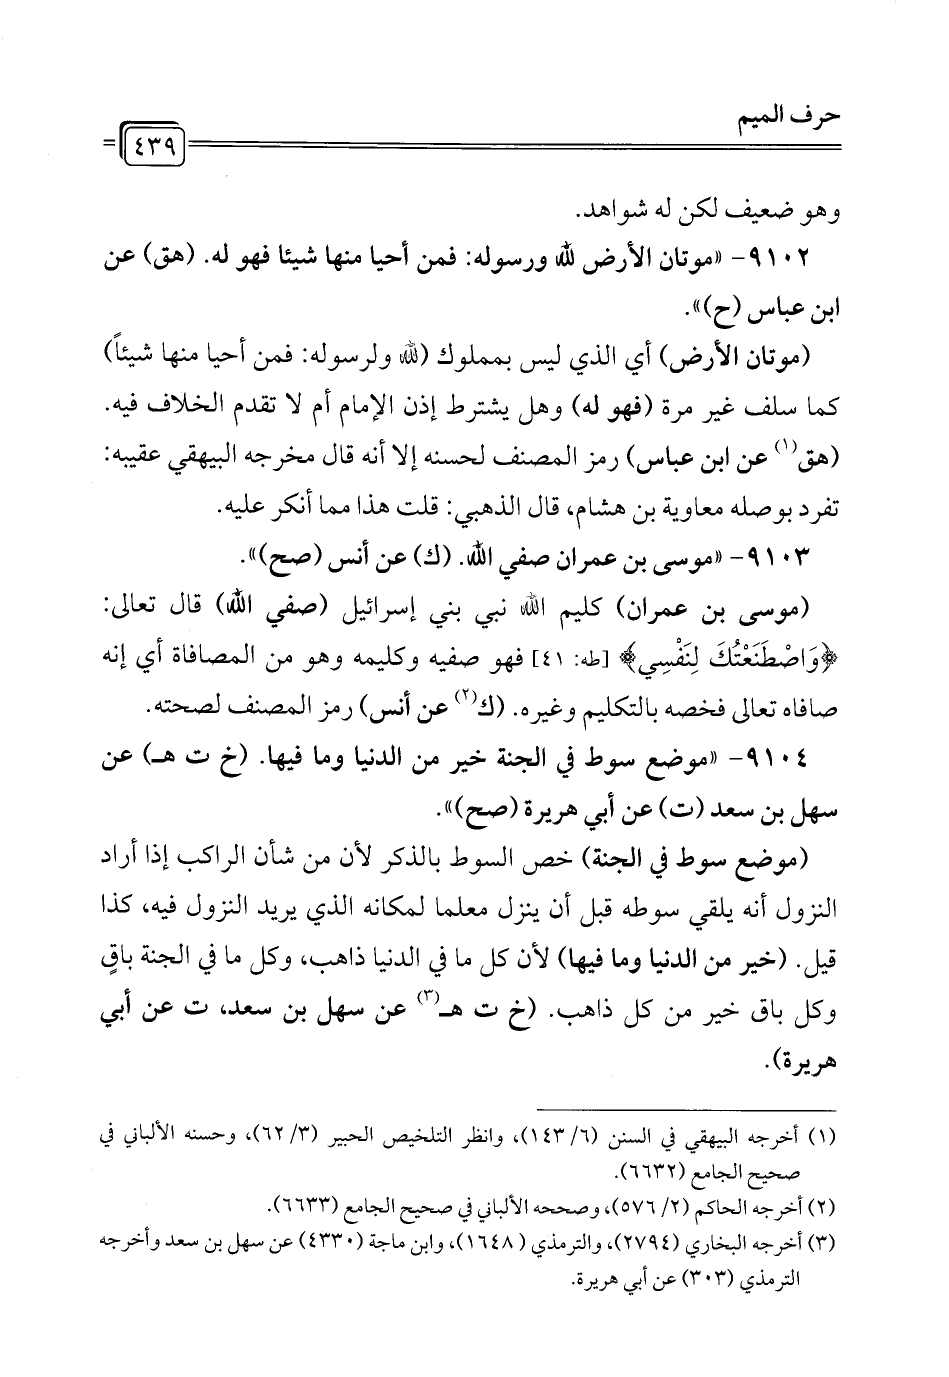 حرف الميم
٤٣٩
وهو ضعيف لكن له شواهد.
٩١٠٢- «موتان الأرض لله ورسوله: فمن أحيا منها شيئا فهو له. (هق) عن
ابن عباس (ح)».
(موتان الأرض) أي الذي ليس بمملوك (لله ولرسوله: فمن أحيا منها شيئاً)
كما سلف غير مرة (فهو له) وهل يشترط إذن الإمام أم لا تقدم الخلاف فيه.
(هق(١) عن ابن عباس) رمز المصنف لحسنه إلا أنه قال مخرجه البيهقي عقيبه:
تفرد بوصله معاوية بن هشام، قال الذهبي: قلت هذا مما أنكر عليه.
٩١٠٣- «موسى بن عمران صفي الله. (ك) عن أنس (صح)».
(موسى بن عمران) كليم الله نبي بني إسرائيل (صفي الله) قال تعالى:
﴿وَاصْطَنَعْتُكَ لِنَفْسِي﴾ [طه: ٤١] فهو صفيه وكليمه وهو من المصافاة أي إنه
صافاه تعالى فخصه بالتكليم وغيره. (ك(٢) عن أنس) رمز المصنف لصحته.
٩١٠٤- «موضع سوط في الجنة خير من الدنيا وما فيها. (خ ت هـ) عن
سهل بن سعد (ت) عن أبي هريرة (صح)».
(موضع سوط في الجنة) خص السوط بالذكر لأن من شأن الراكب إذا أراد
النزول أنه يلقي سوطه قبل أن ينزل معلما لمكانه الذي يريد النزول فيه، كذا
قيل. (خير من الدنيا وما فيها) لأن كل ما في الدنيا ذاهب، وكل ما في الجنة باقٍ
وكل باق خير من كل ذاهب. (خ ت هـ(٣) عن سهل بن سعد، ت عن أبي
هريرة).
(١) أخرجه البيهقي في السنن (٦/ ١٤٣)، وانظر التلخيص الحبير (٣/ ٦٢)، وحسنه الألباني في
صحيح الجامع (٦٦٣٢).
(٢) أخرجه الحاكم (٢/ ٥٧٦)، وصححه الألباني في صحيح الجامع (٦٦٣٣).
(٣) أخرجه البخاري (٢٧٩٤)، والترمذي (١٦٤٨)، وابن ماجة (٤٣٣٠) عن سهل بن سعد وأخرجه
الترمذي (٣٠٣) عن أبي هريرة.